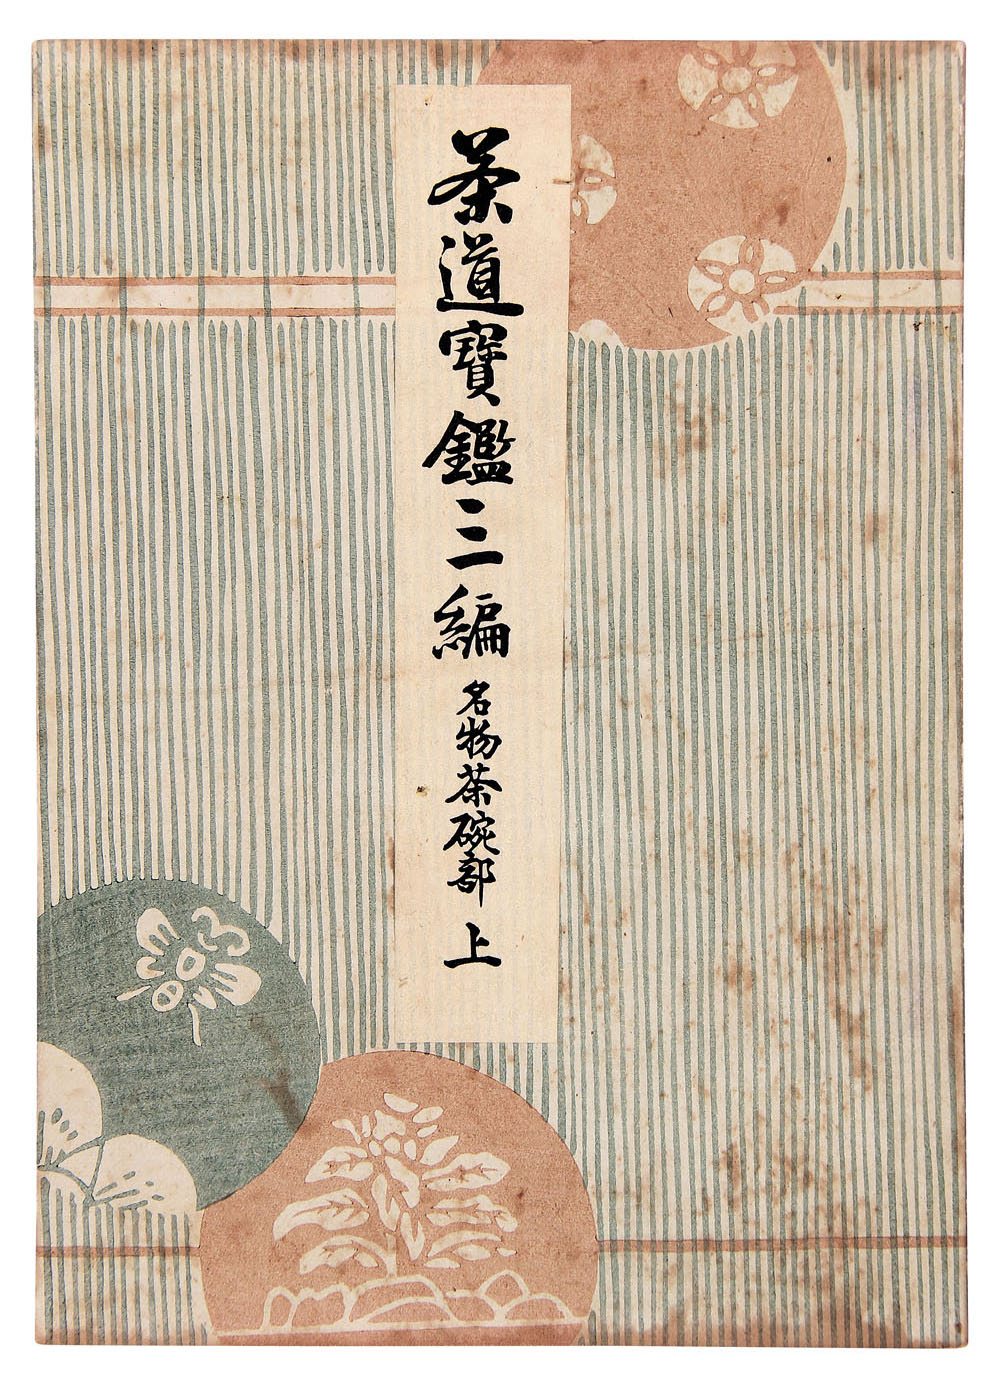 茶道寶鑑三編 名物茶碗部 上